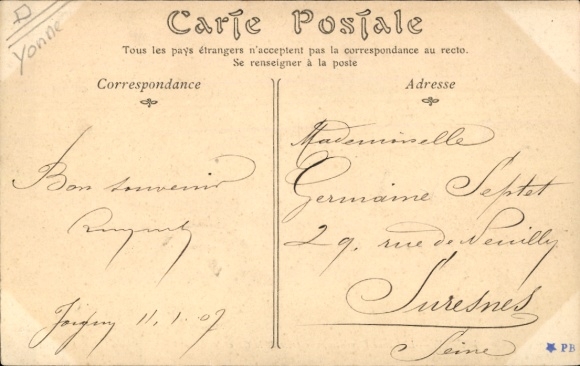 Yonne
Carte Postale
Tous les pays étrangers n'acceptent pas la correspondance au recto.
Se renseigner à la poste
Correspondance
Adresse
Bon souvenir
Joigny 11.1.07
Mademoiselle
Germaine Septet
29, rue de Neuilly
Suresnes
Seine
PB